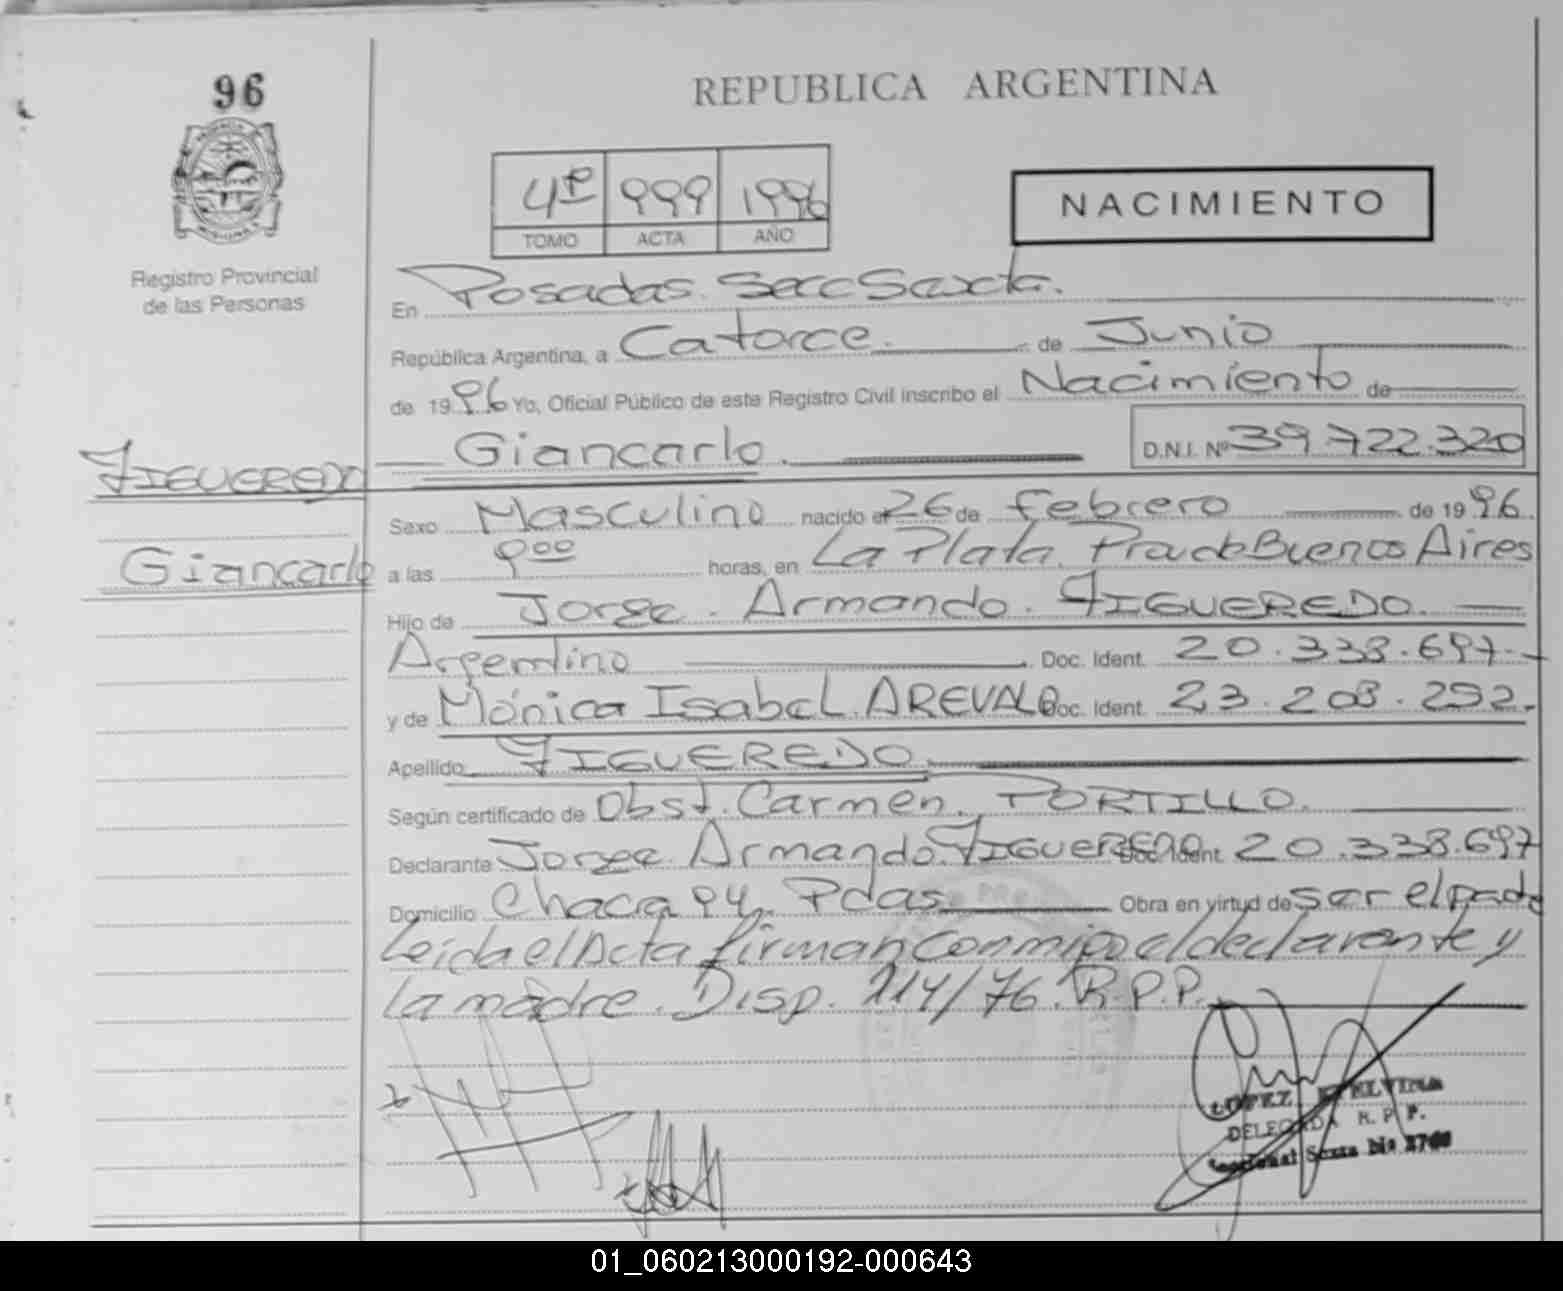 96
REPUBLICA ARGENTINA
4º 999 1996
TOMO ACTA AÑO
NACIMIENTO
Registro Provincial
de las Personas
En Posadas. Secc Sexta.
República Argentina, a Catorce. de Junio
de 1996 Yo, Oficial Público de este Registro Civil inscribo el Nacimiento de
FIGUEREDO Giancarlo. D.N.I. Nº 39.722.320
Sexo Masculino nacido el 26 de febrero de 1996.
Giancarlo a las 9 00 horas, en La Plata. Prov de Buenos Aires
Hijo de Jorge. Armando. FIGUEREDO.
Argentino Doc. Ident. 20.338.697
y de Mónica Isabel. AREVALO Doc. Ident. 23.208.292.
Apellido FIGUEREDO
Según certificado de Obst. Carmen. PORTILLO.
Declarante Jorge. Armando. FIGUEREDO Doc. Ident. 20.338.697
Domicilio Chacra 94. Pdas. Obra en virtud de ser el padre
Leida el Acta firman conmigo el declarante y
la madre. Disp. 114/76. R.P.P.
LOPEZ ETELVINA
DELEGADA R. P. P.
Seccional Sexta bis
01_060213000192-000643